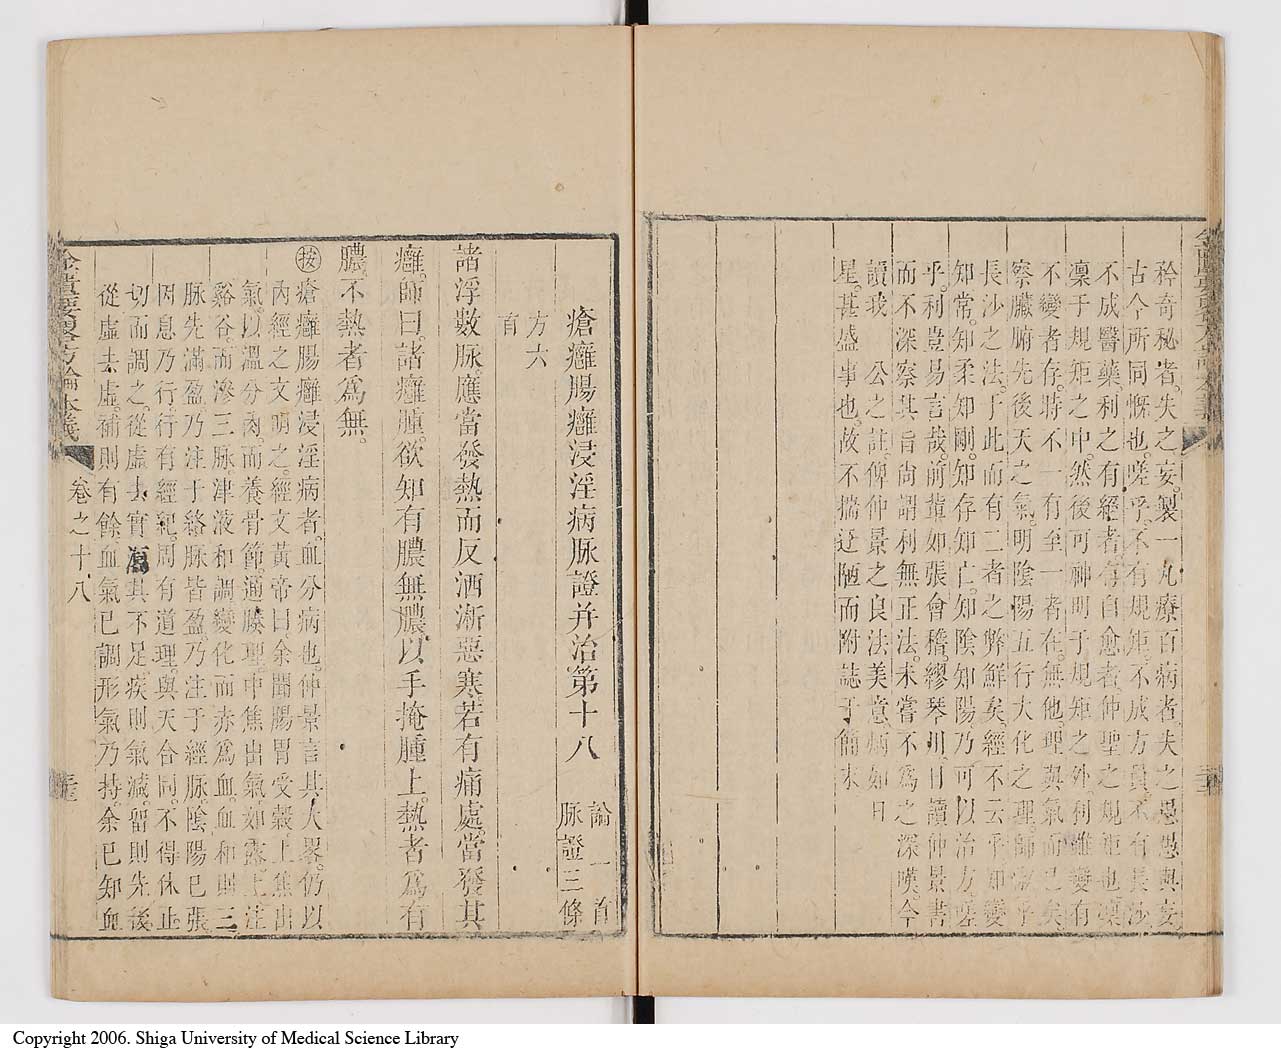 矜奇秘者。失之妄。製一丸療百病者。失之愚。愚與妄
古今所同慨也。嗟乎。不有規矩。不成方員。不有長沙
不成醫藥。利之有經者。有自愈者。仲聖之規矩也。
凜于規矩之中。然後可神明于規矩之外。利雖變有
不變者存。時不一有至一者在。無他。理與氣而已矣
察臟腑先後天之氣。明陰陽五行大化之理。師淑乎
長沙之法。于此而有二者之弊鮮矣。經不云乎。知變
知常。知柔知剛。知存知亡。知陰知陽。乃可以治方。嗟
乎。利豈易言哉。前輩如張會稽。繆琴川。日讀仲景書
而不深察其旨。尚謂利無正法。未嘗不為之深嘆。今
讀我 公之註。俾仲景之良法美意。炳如日
星。甚盛事也。故不揣迂陋。而附誌于簡末
瘡癰腸癰浸淫病脉證并治第十八 論一首
脉證三條
方六
首
諸浮數脉。應當發熱。而反洒淅惡寒。若有痛處。當發其
癰。師曰。諸癰腫。欲知有膿無膿。以手掩腫上。熱者爲有
膿。不熱者爲無。
按 瘡癰腸癰浸淫病者。血分病也。仲景言其大畧。仍以
內經之文明之。經文黃帝曰。余聞腸胃受穀。上焦出
氣。以溫分肉。而養骨節。通腠理。中焦出氣如露。上注
谿谷。而滲三脉。津液和調。變化而赤爲血。血和則三
脉先滿盈。乃注于絡脉。皆盈。乃注于經脉。陰陽已張
因息乃行。行有經紀。周有道理。與天合同。不得休止
切而調之。從虛去實。瀉其不足。疾則氣減。畱則先後
從虛去虛。補則有餘。血氣已調。形氣乃持。余已知血
金匱要略方論本義 卷之十八